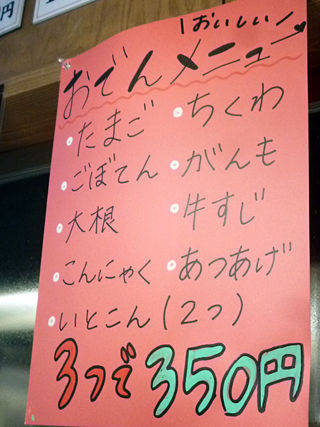 \おいしい/
おでんメニュー
・たまご ・ちくわ
・ごぼてん ・がんも
・大根 ・牛すじ
・こんにゃく ・あつあげ
・いとこん(2つ)
3つで350円
円